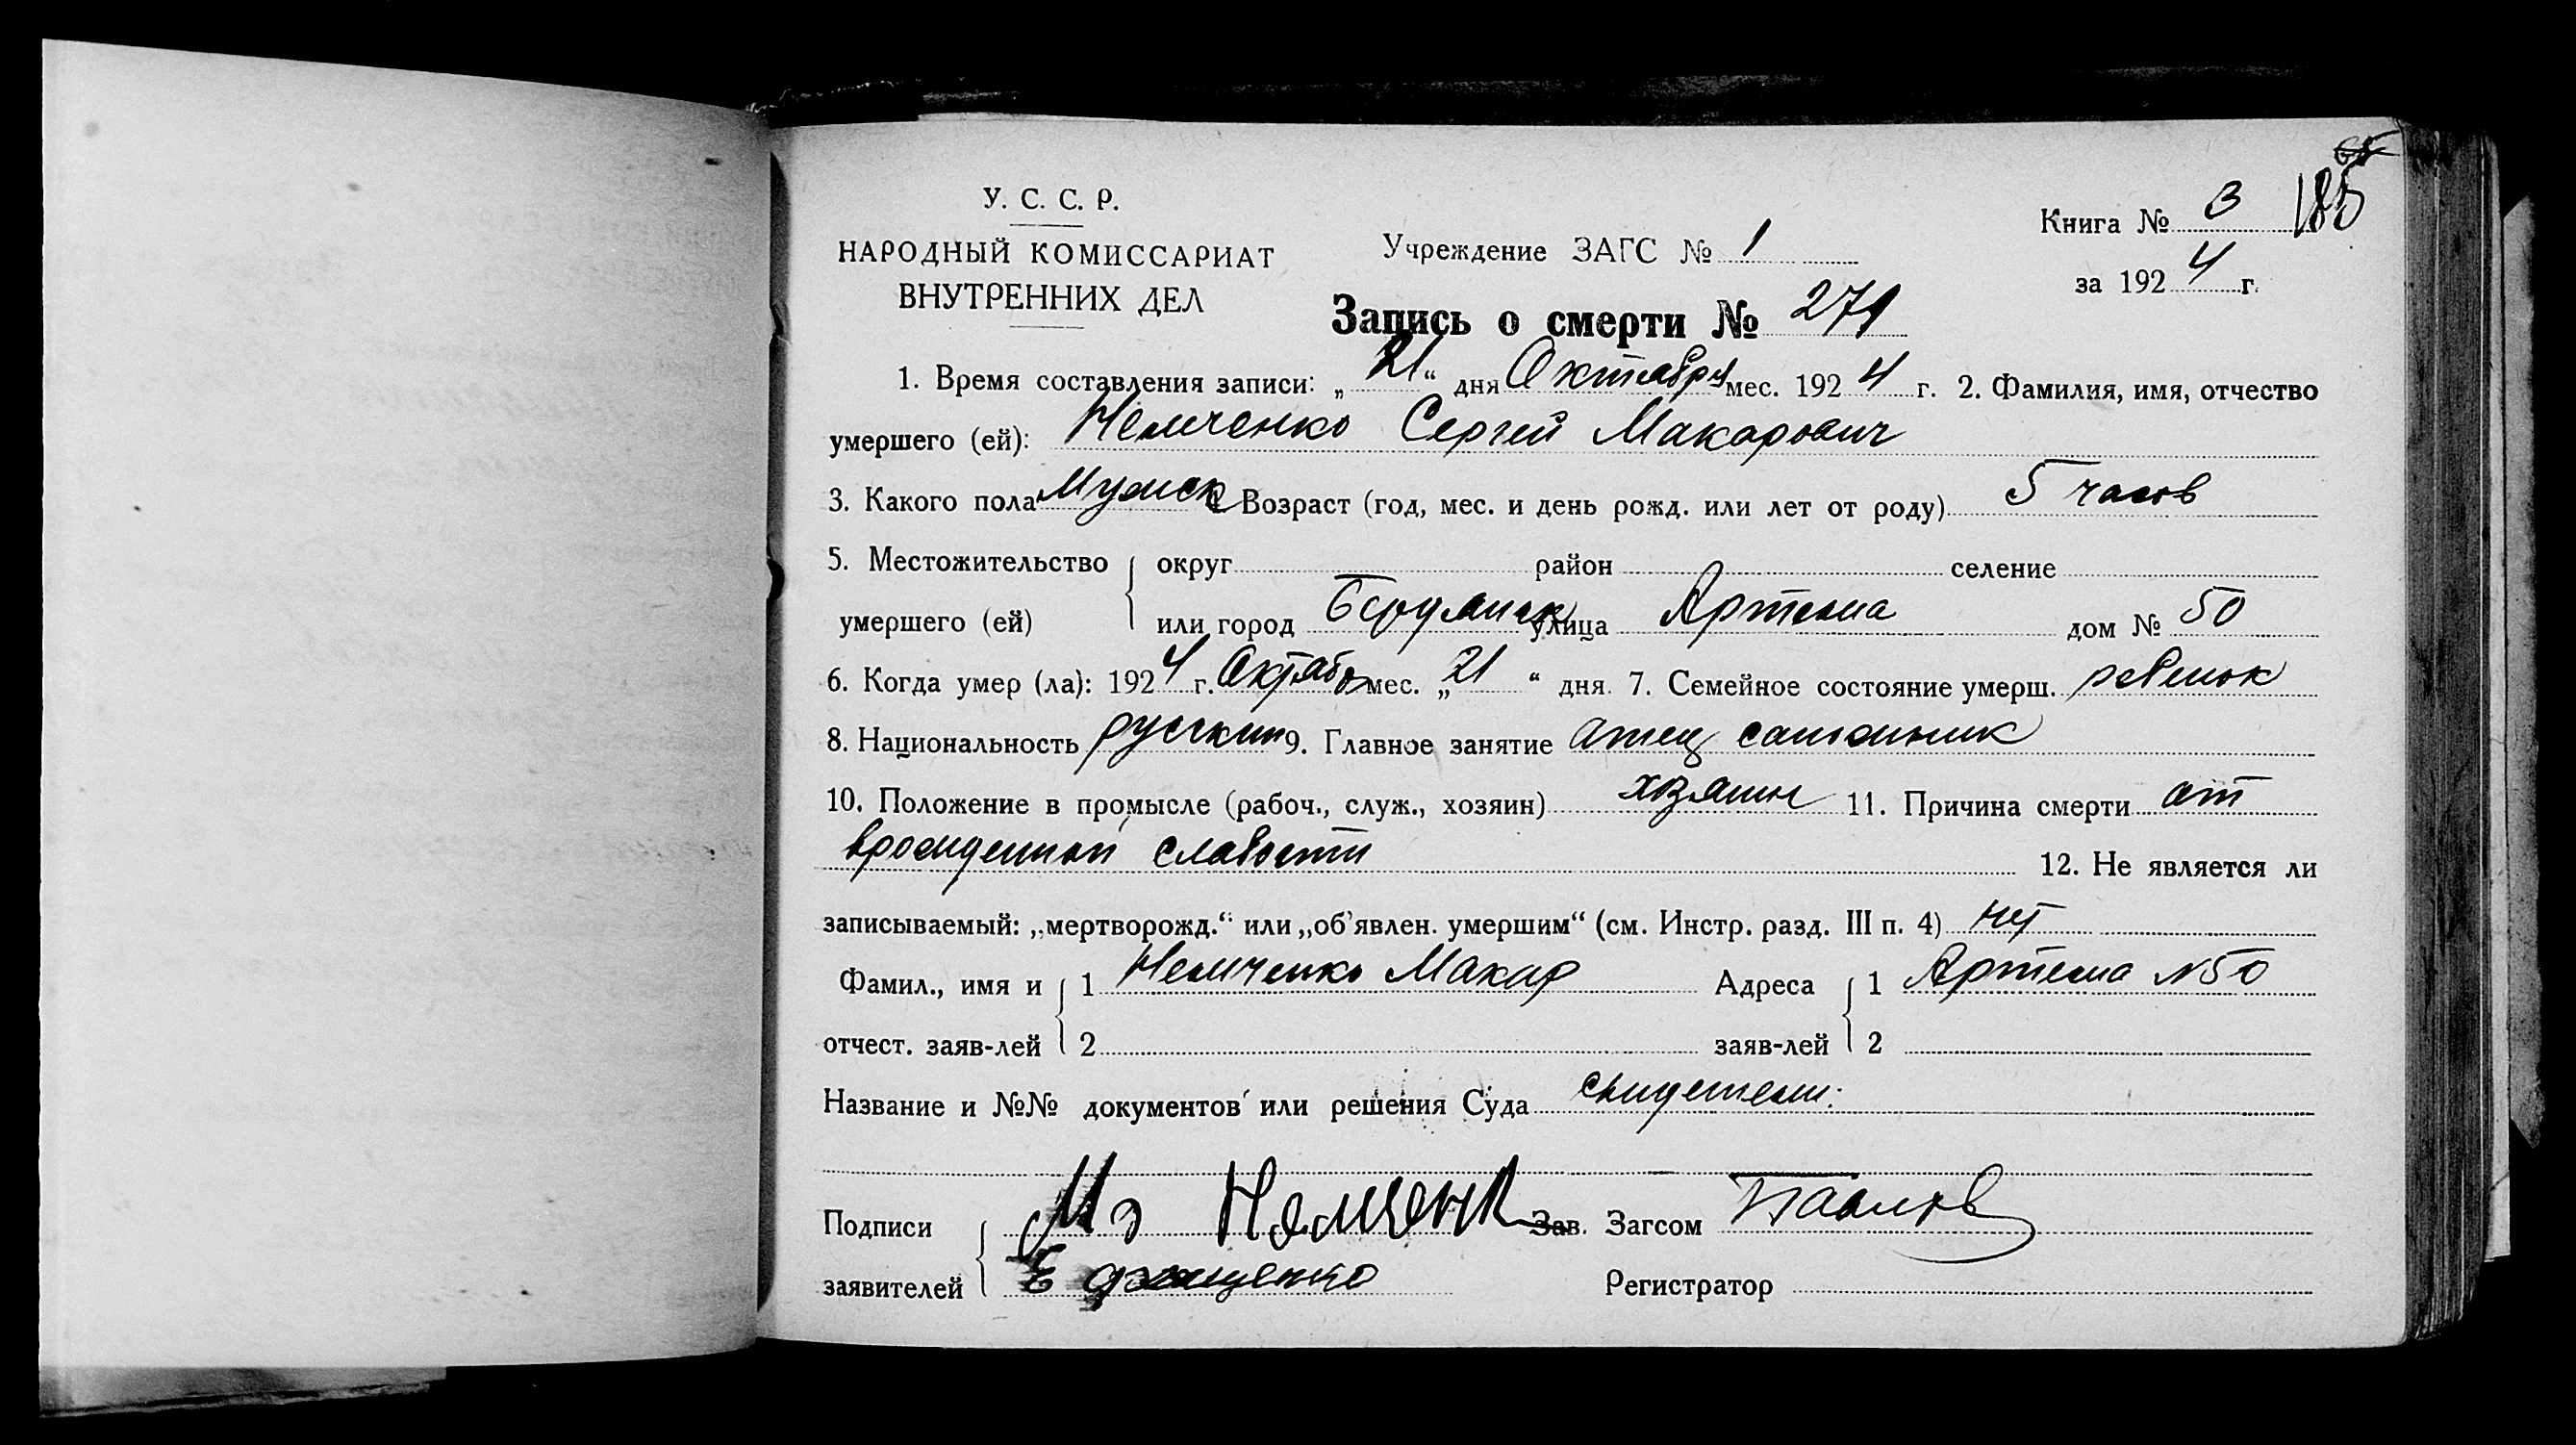 65
У. С. С. Р.
НАРОДНЫЙ КОМИССАРИАТ
ВНУТРЕННИХ ДЕЛ
Учреждение ЗАГС № 1
Книга № 3 185
за 1924 г.
Запись о смерти № 271
1. Время составления записи: „21“ дня Октября мес. 1924 г. 2. Фамилия, имя, отчество
умершего (ей): Немченко Сергей Макарович
3. Какого пола Мужск 4. Возраст (год, мес. и день рожд. или лет от роду) 5 часов
5. Местожительство умершего (ей) округ район селение
или город Бердянск улица Артема дом № 50
6. Когда умер (ла): 1924 г. Октябр мес. „21“ дня. 7. Семейное состояние умерш. ребенок
8. Национальность русский 9. Главное занятие отец сапожник
10. Положение в промысле (рабоч., служ., хозяин) хозяин 11. Причина смерти от
врожденной слабости 12. Не является ли
записываемый: „мертворожд.“ или „об’явлен. умершим“ (см. Инстр. разд. III п. 4) нет
Фамил., имя и отчест. заяв-лей 1 Немченко Макар Адреса заяв-лей 1 Артема №50
2 2
Название и №№ документов или решения Суда свидетели:
Подписи заявителей Немченк Зав. Загсом Павлов
Е Регистратор